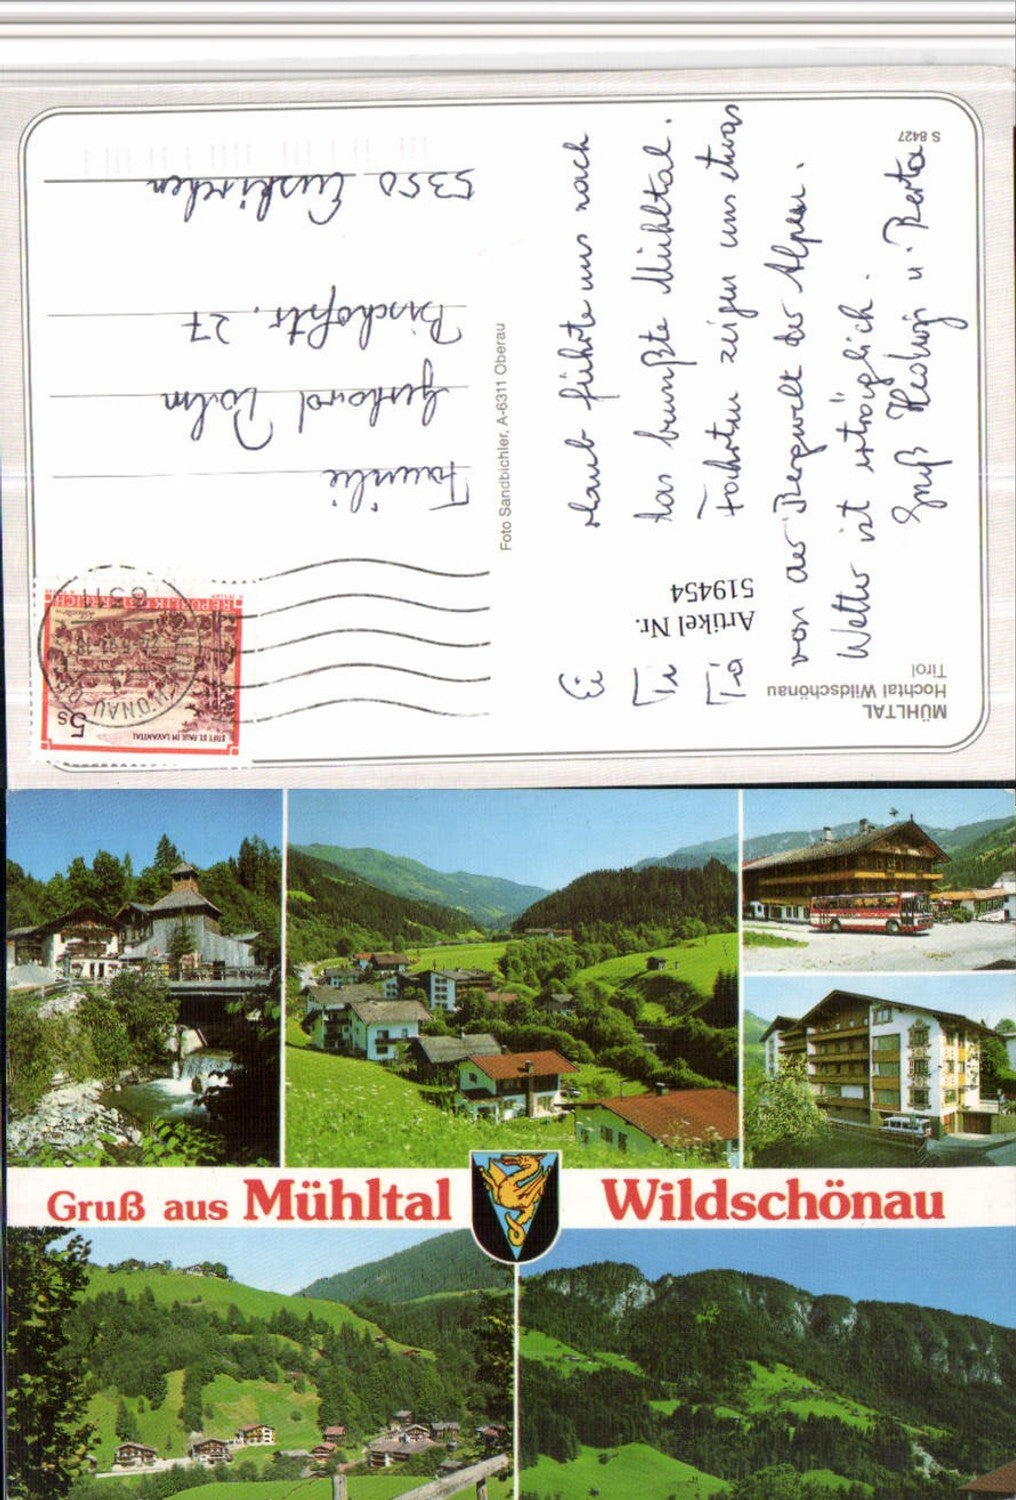 MÜHLTAL
Hochtal Wildschönau
Tirol
Artikel Nr.
519454
S 8427
Foto Sandbichler, A-6311 Oberau
STIFT ST. PAUL IM LAVANTTAL
5s
REPUBLIK ÖSTERREICH
6311
führte uns nach
Tirol
das Mühltal.
Die Fahrten zeigen uns etwas
von der Bergwelt der Alpen.
Wetter ist erträglich.
Gruß Hedwig u. Berta
Familie
Gerhard Dolm
Bischofstr. 27
5350 Euskirchen
Gruß aus Mühltal Wildschönau